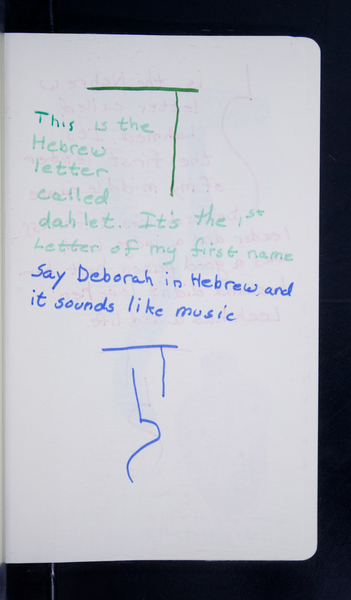 ד
This is the
Hebrew
letter
called
dahlet. It's the 1st
Letter of my first name
Say Deborah in Hebrew and
it sounds like music